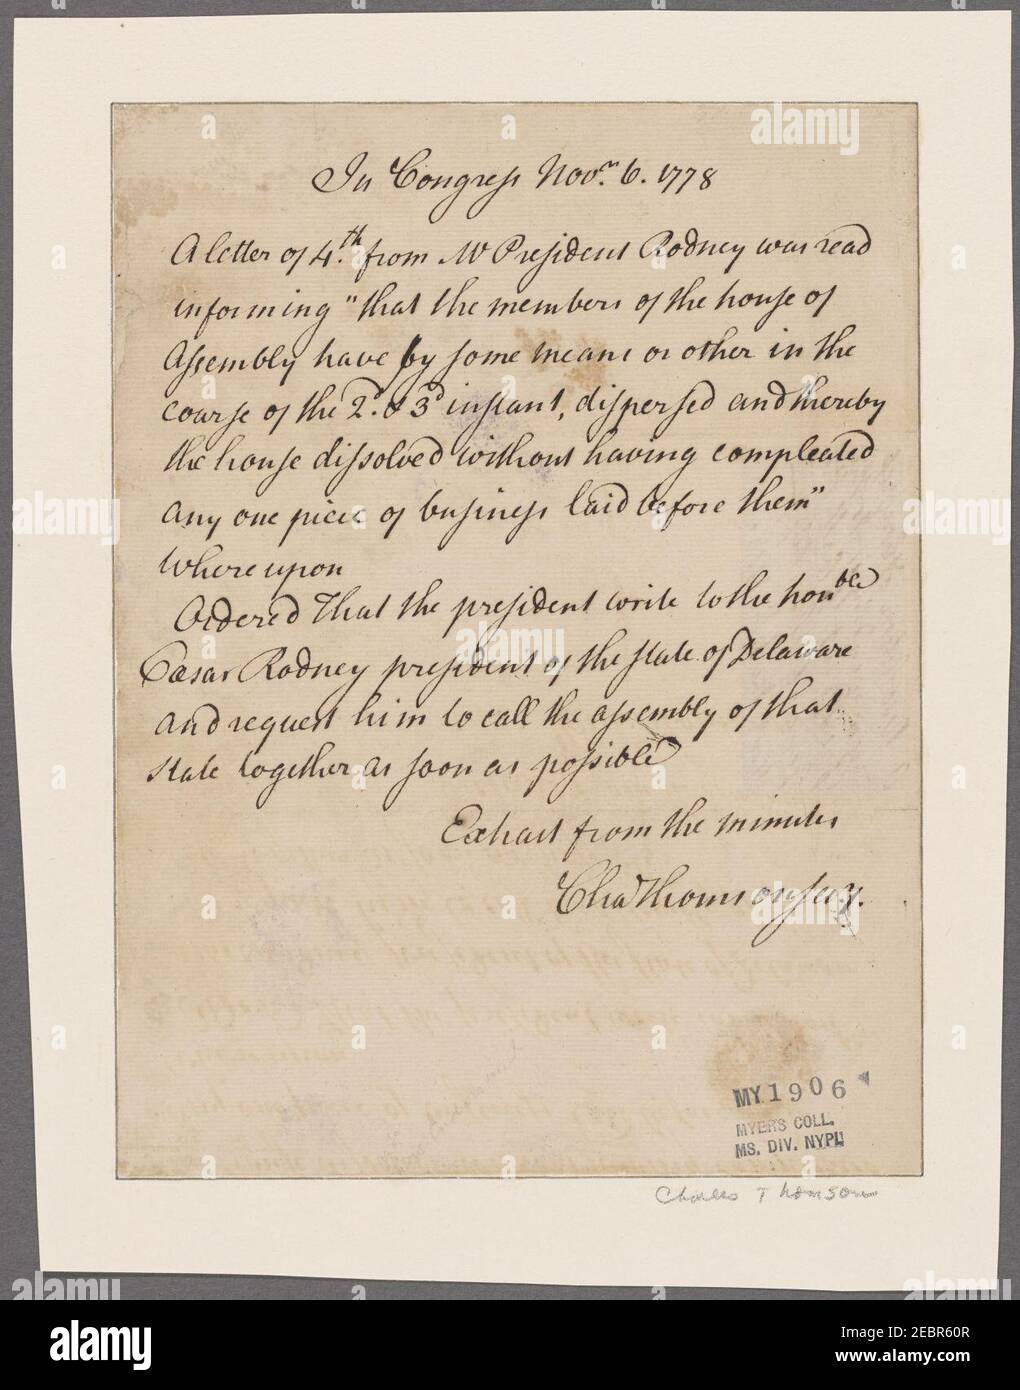 In Congress Nov.r 6. 1778
A letter of 4.th from Mr President Rodney was read
informing "that the members of the house of
Assembly have by some means or other in the
course of the 2.d & 3d instant, dispersed and thereby
the house dissolved without having compleated
any one piece of business laid before them"
Whereupon
Ordered That the president write to the honble
Cæsar Rodney president of the state of Delaware
and request him to call the assembly of that
state together as soon as possible
Extract from the minutes
Chas Thomson secy.
MY 1906
MYERS COLL.
MS. DIV. NYPL
Charles Thomson
alamy
Image ID: 2EBR60R
www.alamy.com